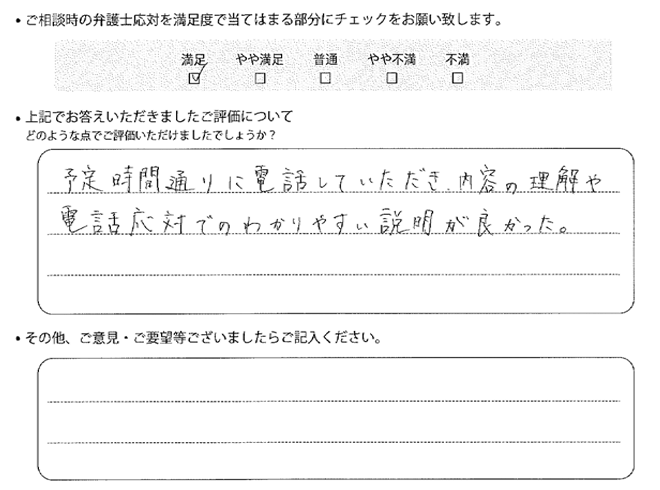 • ご相談時の弁護士応対を満足度で当てはまる部分にチェックをお願い致します。
満足 やや満足 普通 やや不満 不満
☑ □ □ □ □
• 上記でお答えいただきましたご評価について
どのような点でご評価いただけましたでしょうか？
予定時間通りに電話していただき、内容の理解や
電話応対でのわかりやすい説明が良かった。
• その他、ご意見・ご要望等ございましたらご記入ください。